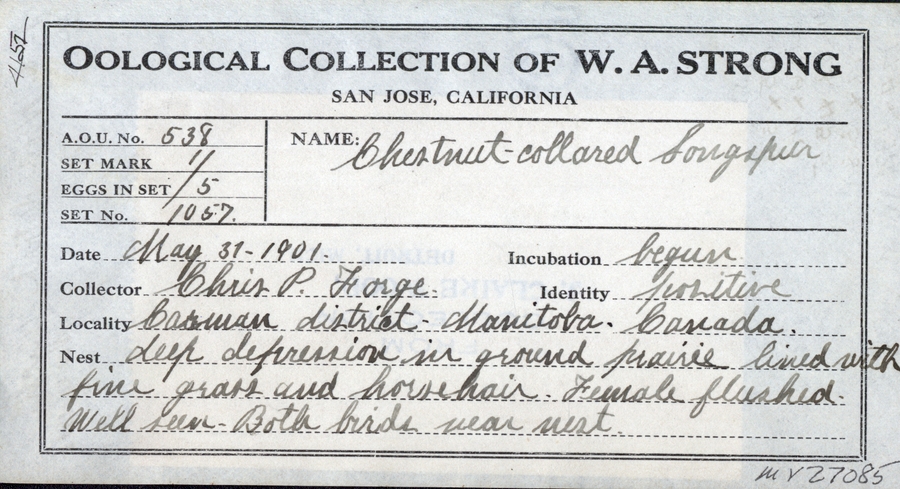 4652
OOLOGICAL COLLECTION OF W. A. STRONG
SAN JOSE, CALIFORNIA
A.O.U. No. 538
SET MARK 1/
EGGS IN SET /5
SET No. 1057.
NAME: Chestnut-collared Longspur
Date May 31-1901.
Incubation begun
Collector Chris P. Forge.
Identity positive
Locality Carman district - Manitoba. Canada.
Nest deep depression in ground prairie lined with
fine grass and horsehair. Female flushed.
Well seen - Both birds near nest.
MVZ 7085